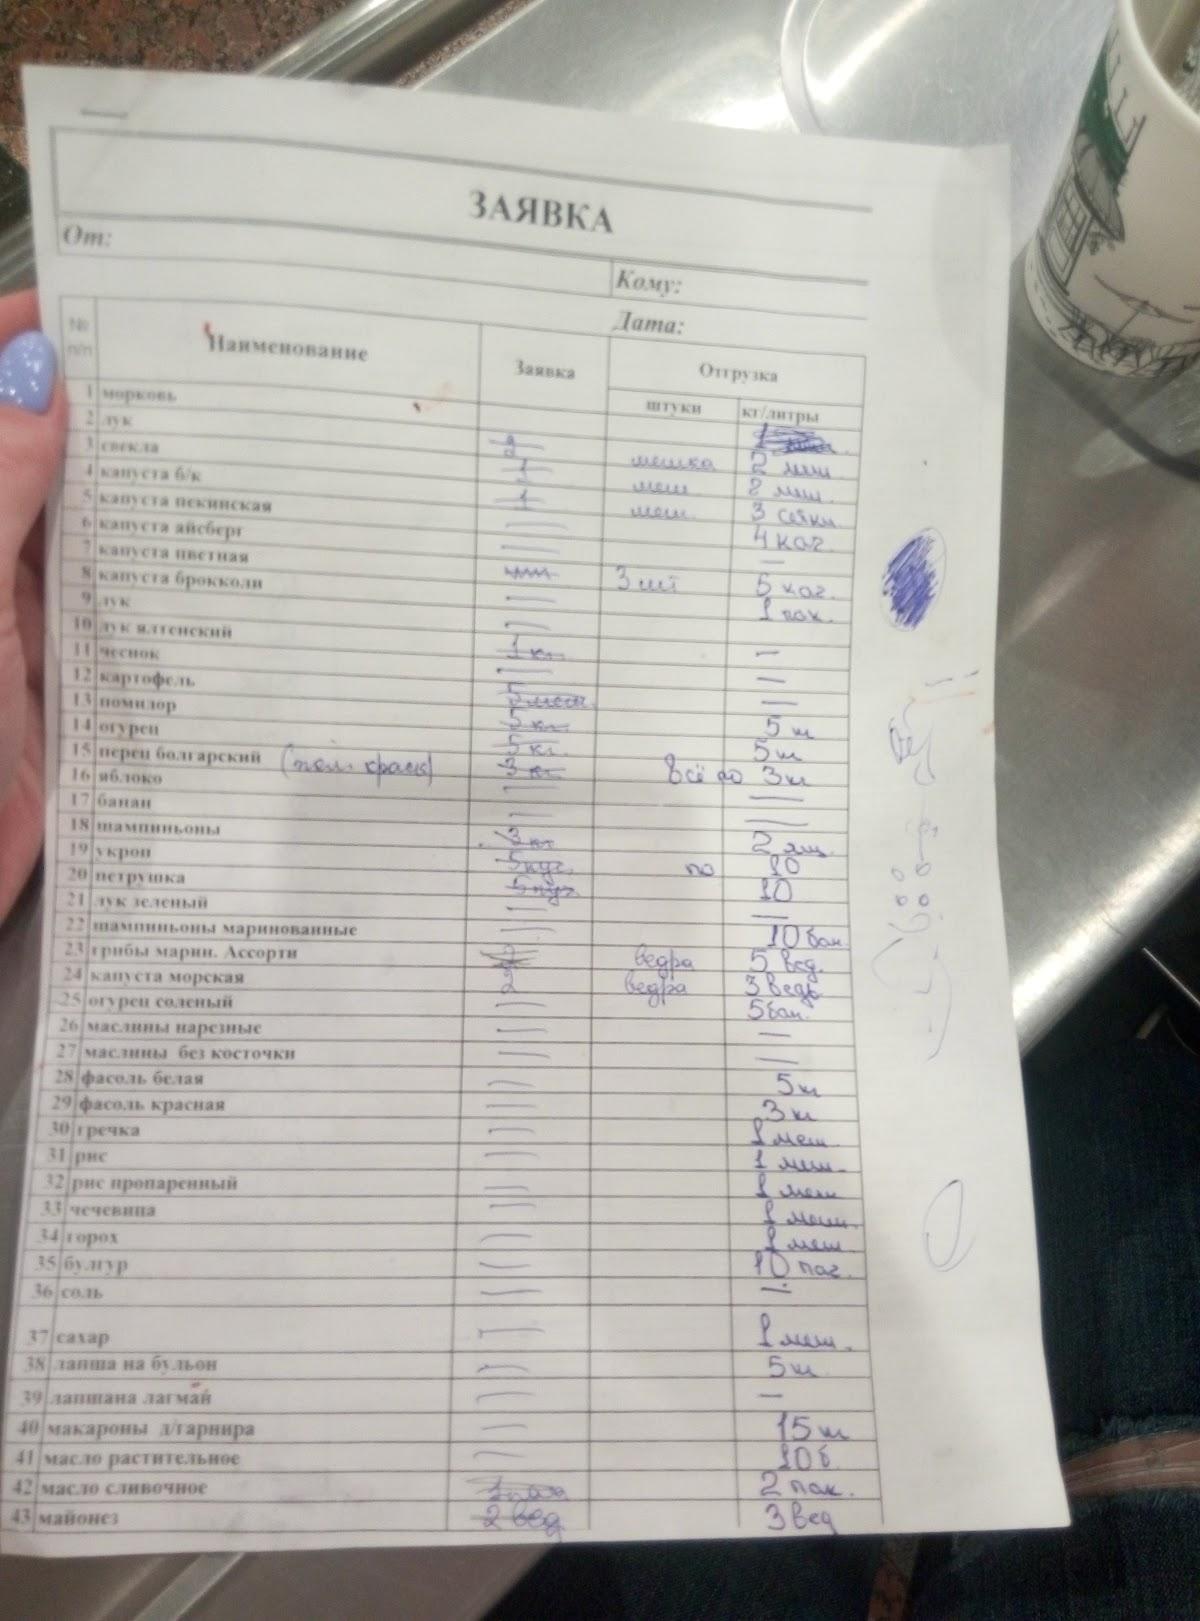 ЗАЯВКА
От:
Кому:
Дата:
№ п/п Наименование Заявка Отгрузка
штуки кг/литры
1 морковь
2 лук
3 свекла 2 мешка 2 меш.
4 капуста б/к 1 меш. 2 меш.
5 капуста пекинская 1 меш. 3 сетки
6 капуста айсберг — 4 коч.
7 капуста цветная — —
8 капуста брокколи 3 шт 5 коч.
9 лук — 1 пак.
10 лук ялтенский —
11 чеснок 1 кг —
12 картофель — —
13 помидор 5 меш. —
14 огурец 5 кг 5 кг
15 перец болгарский (пол. красн) 5 кг. 5 кг
16 яблоко 3 кг всё по 3 кг
17 банан — —
18 шампиньоны — —
19 укроп 3 кг 2 ящ.
20 петрушка 5 пуч. по 10
21 лук зеленый 5 пуч 10
22 шампиньоны маринованные — —
23 грибы марин. Ассорти — 10 бан.
24 капуста морская 2 ведра 5 вед.
25 огурец соленый 2 ведра 3 ведр
26 маслины нарезные — 5 бан.
27 маслины без косточки — —
28 фасоль белая — 5 кг
29 фасоль красная — 3 кг
30 гречка — 1 меш.
31 рис — 1 меш.
32 рис пропаренный — 1 меш
33 чечевица — 1 меш.
34 горох — 1 меш.
35 булгур — 10 пач.
36 соль — —
37 сахар — 1 меш.
38 лапша на бульон — 5 кг
39 лапшана лагман — —
40 макароны д/гарнира — 15 кг
41 масло растительное — 10 б.
42 масло сливочное 2 пак.
43 майонез 2 вед 3 вед